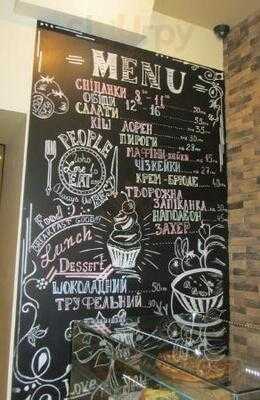 MENU
СНІДАНКИ 8⁰⁰-11⁰⁰
ОБІДИ 12⁰⁰-16⁰⁰
САЛАТИ
КІШ ЛОРЕН 35
ПИРОГИ 30
МАФІНИ-КЕЙКИ 45
ЧІЗКЕЙКИ
КРЕМ-БРЮЛЕ
ТВОРОЖНА
ЗАПІКАНКА 30
НАПОЛЕОН 45
ЗАХЕР
PEOPLE
who
Love
EAT
Food
BREAKFAST
Lunch
Dessert
ШОКОЛАДНИЙ
ТРУФЕЛЬНИЙ
Love